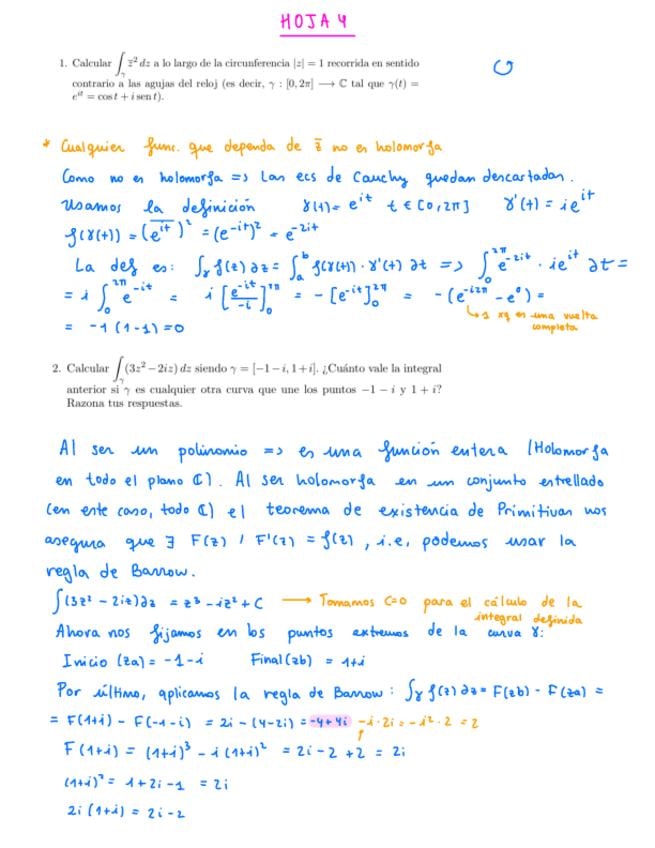 HOJA 4
1. Calcular ∫_γ z̄² dz a lo largo de la circunferencia |z| = 1 recorrida en sentido
contrario a las agujas del reloj (es decir, γ : [0, 2π] ⟶ ℂ tal que γ(t) =
e^{it} = cos t + i sen t).
* Cualquier func. que dependa de z̄ no es holomorfa
Como no es holomorfa => Las ecs de Cauchy quedan descartadas.
Usamos la definición γ(t) = e^{it} t ∈ [0,2π] γ'(t) = ie^{it}
f(γ(t)) = (\overline{e^{it}})² = (e^{-it})² = e^{-2it}
La def es: ∫_γ f(z) ∂z = ∫_a^b f(γ(t)) · γ'(t) ∂t => ∫_0^{2π} e^{-2it} · ie^{it} ∂t =
= i ∫_0^{2π} e^{-it} = i [e^{-it}/-i]_0^{2π} = - [e^{-it}]_0^{2π} = -(e^{-i2π} - e^0) =
↳ 1 xq es una vuelta
completa
= -1 (1-1) = 0
2. Calcular ∫_γ (3z² − 2iz) dz siendo γ = [−1 − i, 1 + i]. ¿Cuánto vale la integral
anterior si γ es cualquier otra curva que une los puntos −1 − i y 1 + i?
Razona tus respuestas.
Al ser un polinomio => es una función entera (Holomorfa
en todo el plano ℂ). Al ser holomorfa en un conjunto estrellado
(en este caso, todo ℂ) el teorema de existencia de Primitivas nos
asegura que ∃ F(z) / F'(z) = f(z), i.e, podemos usar la
regla de Barrow.
∫(3z² - 2iz)∂z = z³ - iz² + C ⟶ Tomamos C=0 para el cálculo de la
integral definida
Ahora nos fijamos en los puntos extremos de la curva γ:
Inicio (za) = -1-i Final (zb) = 1+i
Por último, aplicamos la regla de Barrow: ∫_γ f(z) ∂z = F(zb) - F(za) =
= F(1+i) - F(-1-i) = 2i - (4-2i) = -4+4i -i·2i = -i²·2 = 2
F(1+i) = (1+i)³ - i(1+i)² = 2i - 2 + 2 = 2i
(1+i)² = 1 + 2i - 1 = 2i
2i (1+i) = 2i - 2